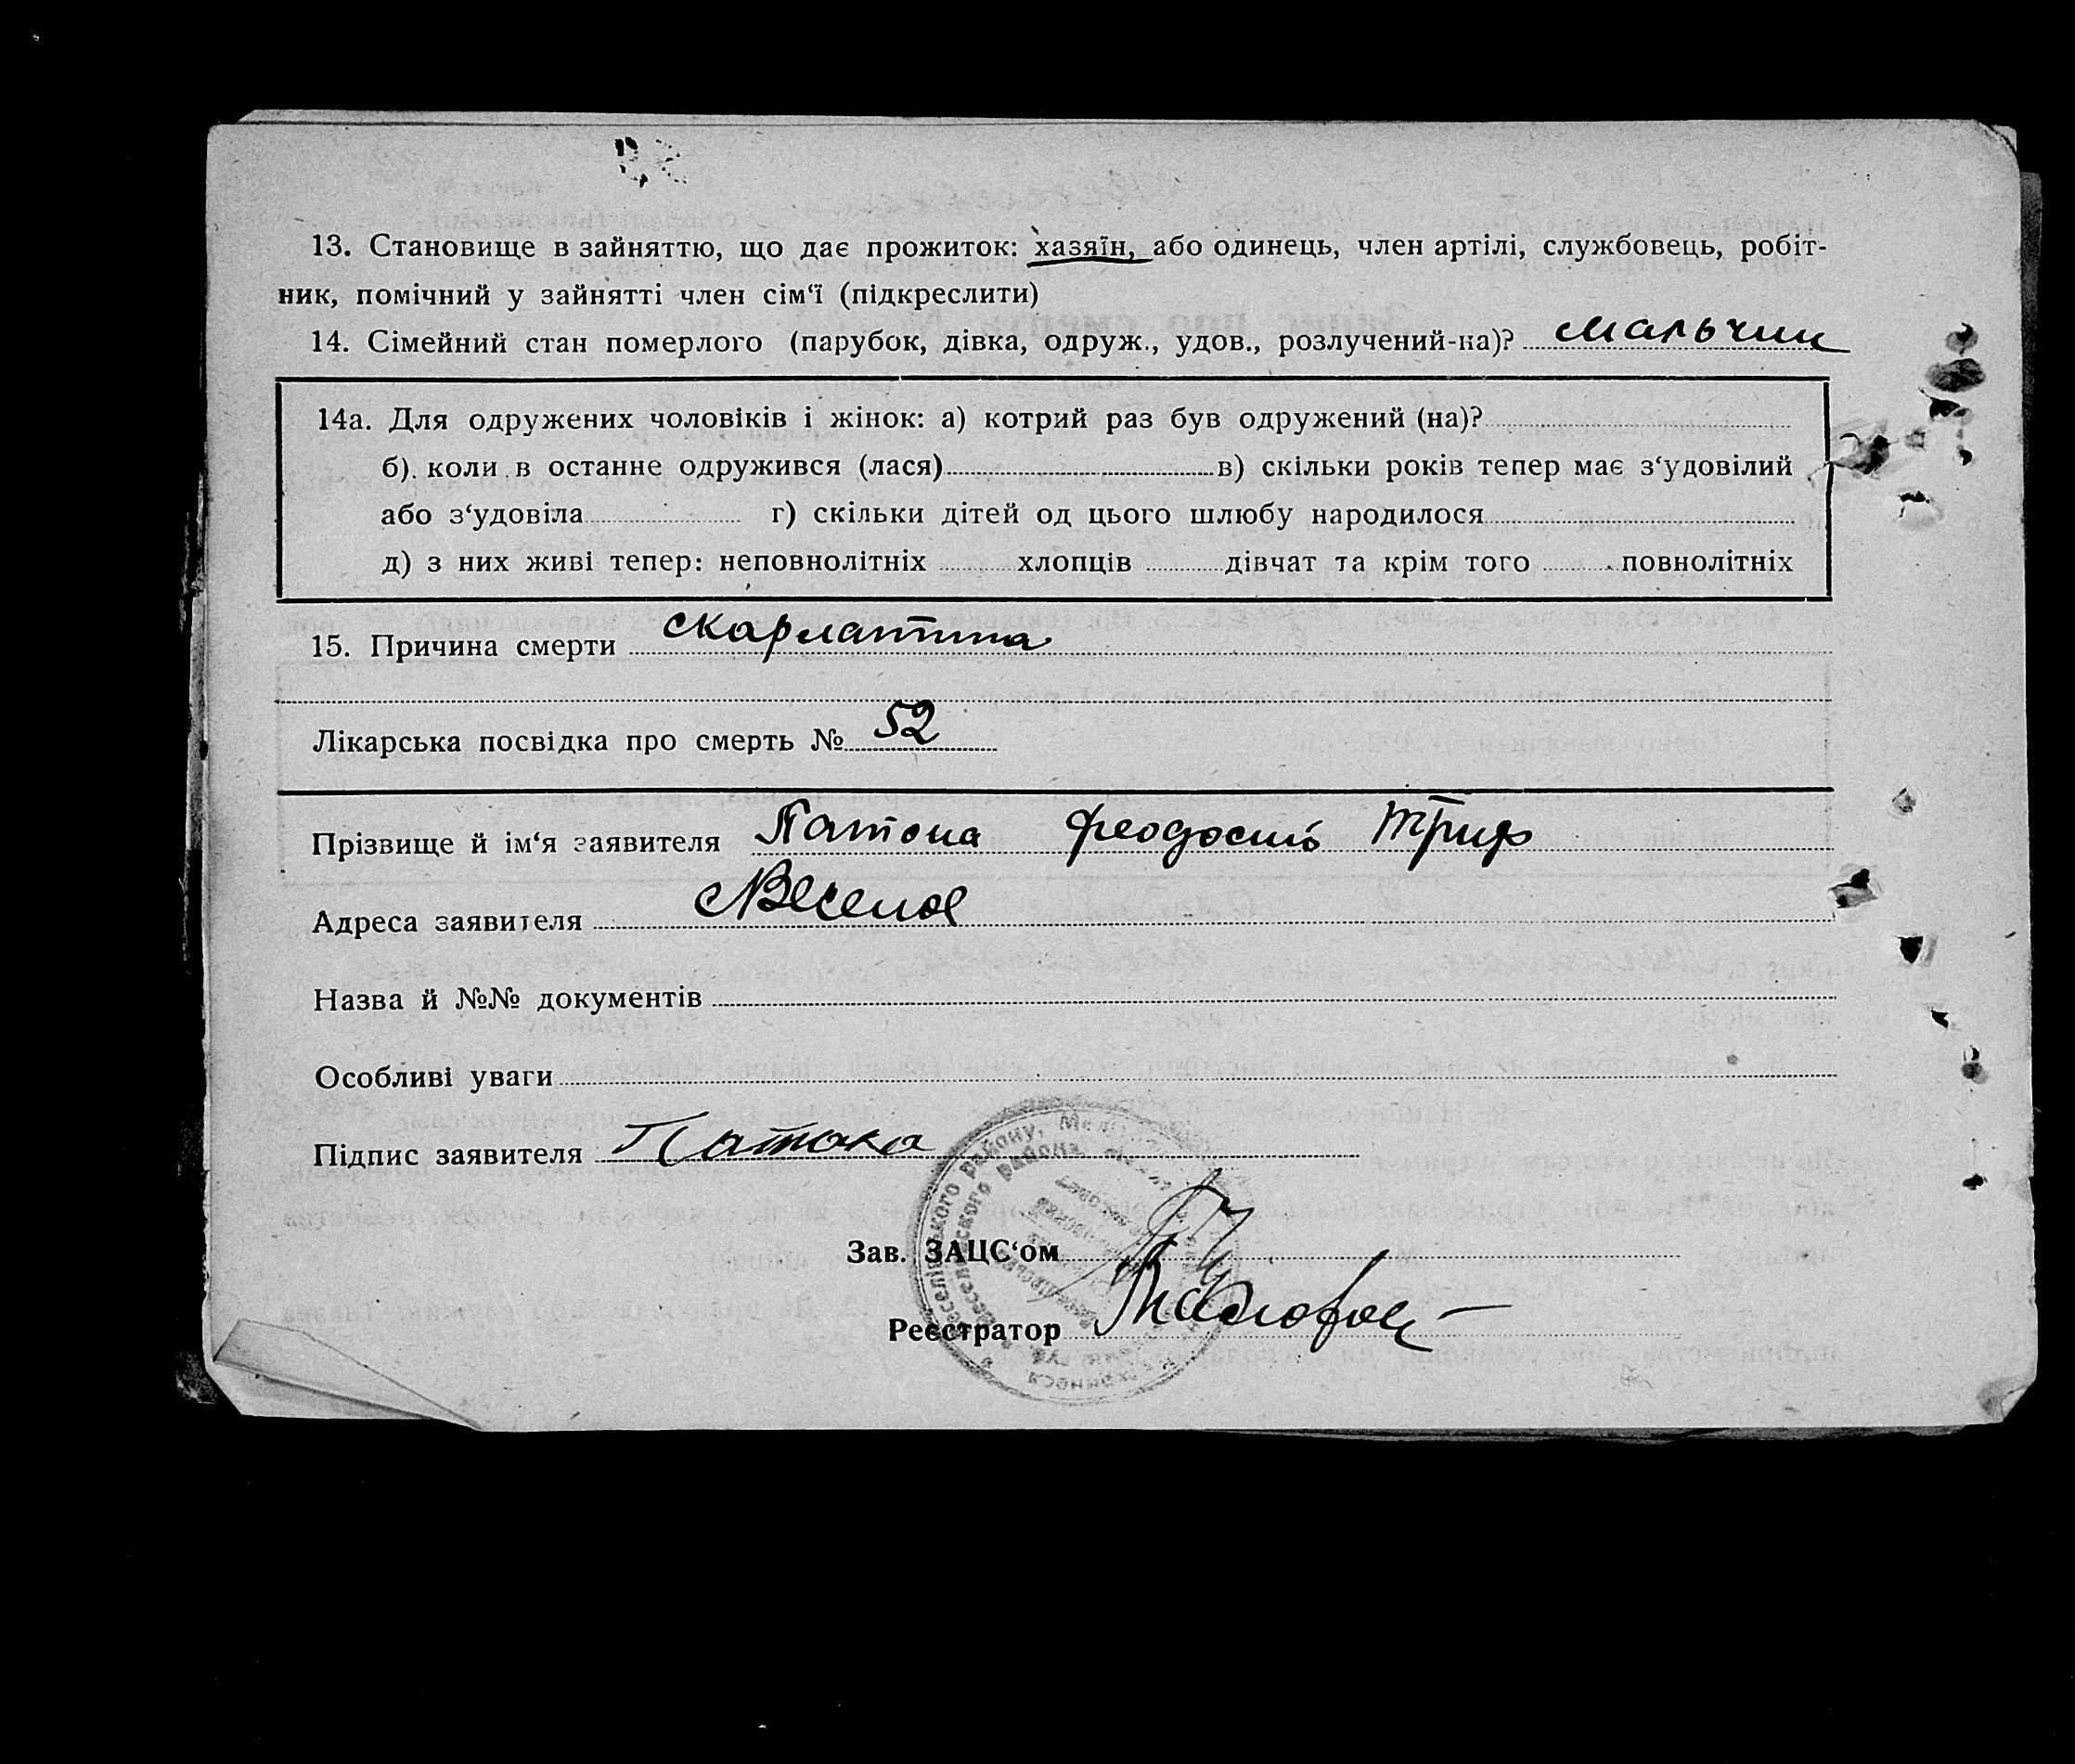 13. Становище в зайняттю, що дає прожиток: хазяїн, або одинець, член артілі, службовець, робіт-
ник, помічний у зайнятті член сім‘ї (підкреслити)
14. Сімейний стан померлого (парубок, дівка, одруж., удов., розлучений-на)? мальчик
14а. Для одружених чоловіків і жінок: а) котрий раз був одружений (на)?
б). коли в останне одружився (лася) в) скільки років тепер має з‘удовілий
або з‘удовіла г) скільки дітей од цього шлюбу народилося
д) з них живі тепер: неповнолітніх хлопців дівчат та крім того повнолітніх
15. Причина смерти скарлатина
Лікарська посвідка про смерть № 52
Прізвище й ім‘я заявителя Патока Феодосий Триф
Адреса заявителя с Веселое
Назва й №№ документів
Особливі уваги
Підпис заявителя Патока
Зав. ЗАЦС‘ом
Реєстратор